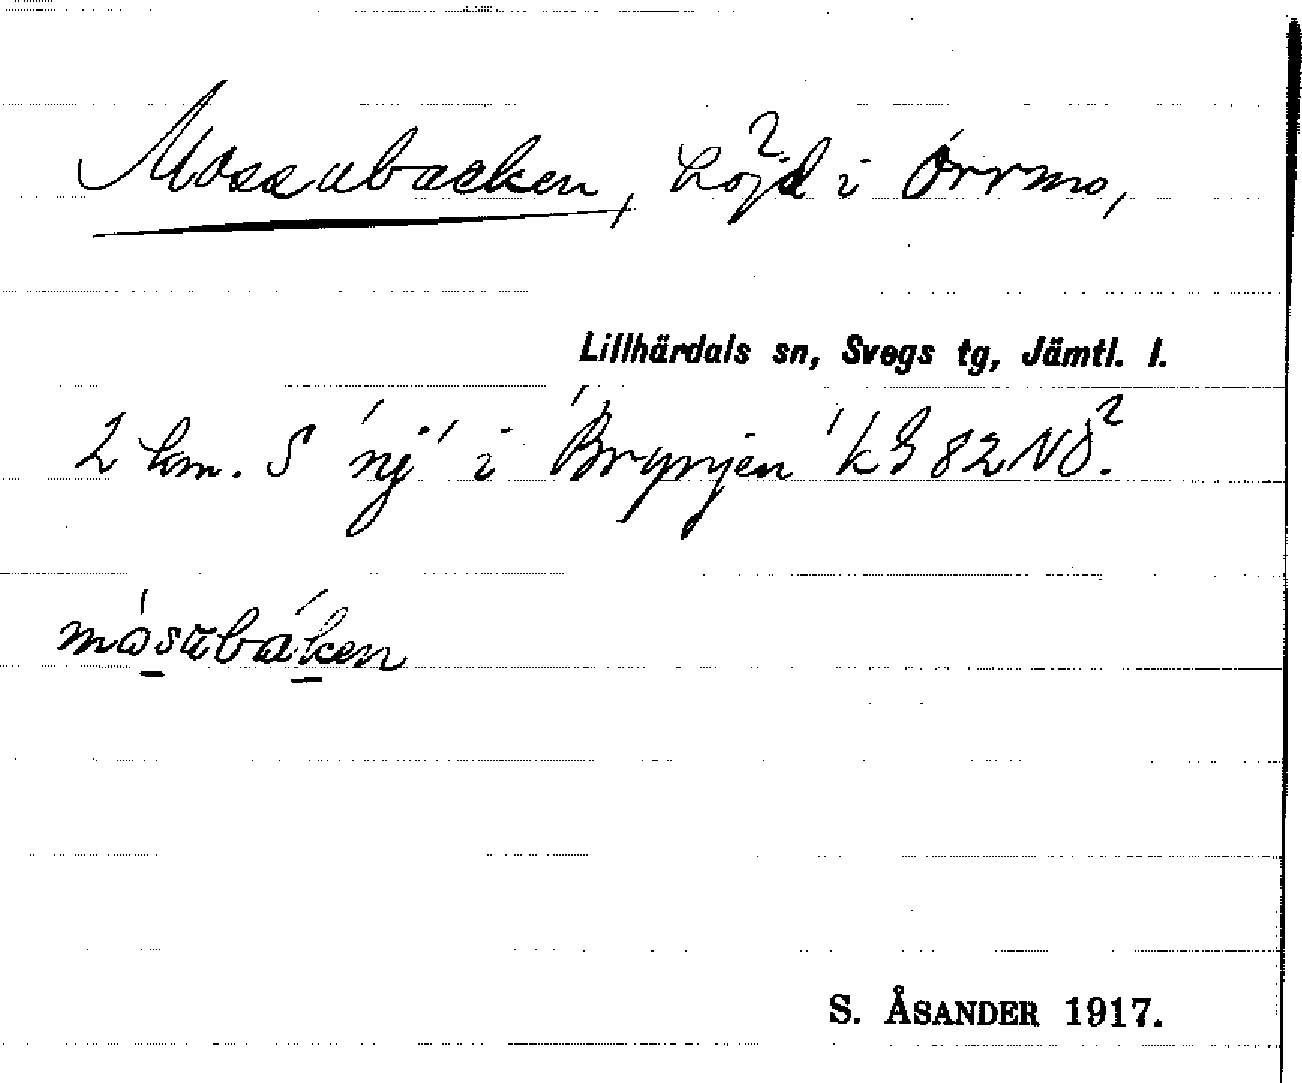 Mossubacken, Höjd² i Orrmo,
Lillhärdals sn, Svegs tg, Jämtl. l.
2 km. S 'nj' i 'Brynjen' kb 82 NO².
mosubaken
S. ÅSANDER 1917.